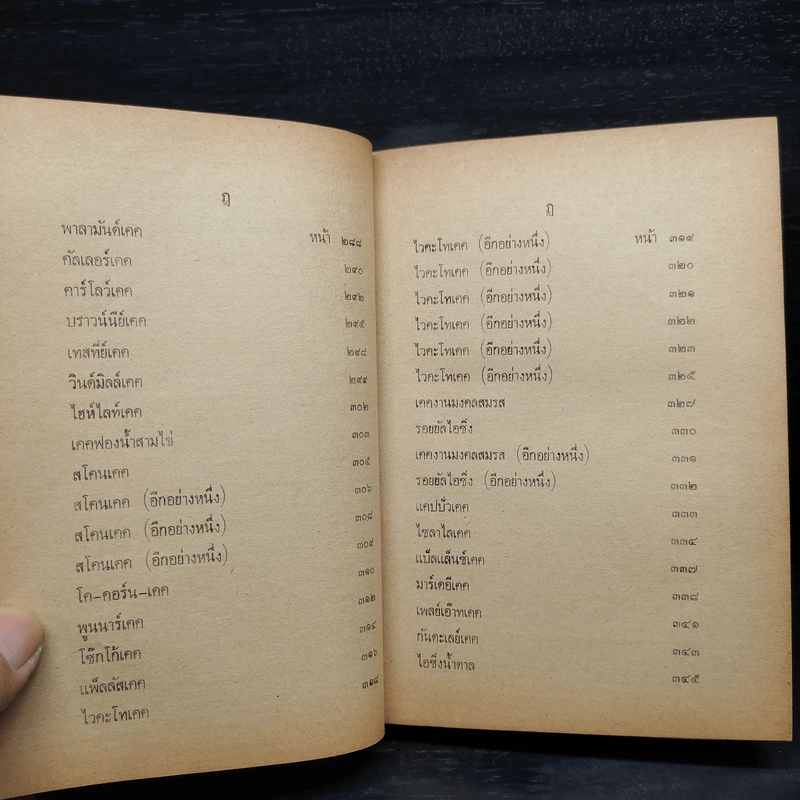 ฎ
พาลามันด์เคค หน้า ๒๘๘
คัลเลอร์เคค ๒๙๐
คาร์โลว์เคค ๒๙๒
บราวน์นีย์เคค ๒๙๕
เทสที่ย์เคค ๒๙๘
วินด์มิลล์เคค ๒๙๙
ไฮห์ไลท์เคค ๓๐๒
เคคฟองน้ำสามไข่ ๓๐๓
สโคนเคค ๓๐๕
สโคนเคค (อีกอย่างหนึ่ง) ๓๐๖
สโคนเคค (อีกอย่างหนึ่ง) ๓๐๘
สโคนเคค (อีกอย่างหนึ่ง) ๓๐๙
โค-คอร์น-เคค ๓๑๐
พูนนาร์เคค ๓๑๒
โช๊กโก้เคค ๓๑๔
แพ็ลลัสเคค ๓๑๖
ไวคะโทเคค ๓๑๘
ฏ
ไวคะโทเคค (อีกอย่างหนึ่ง) หน้า ๓๑๙
ไวคะโทเคค (อีกอย่างหนึ่ง) ๓๒๐
ไวคะโทเคค (อีกอย่างหนึ่ง) ๓๒๑
ไวคะโทเคค (อีกอย่างหนึ่ง) ๓๒๒
ไวคะโทเคค (อีกอย่างหนึ่ง) ๓๒๓
ไวคะโทเคค (อีกอย่างหนึ่ง) ๓๒๕
เคคงานมงคลสมรส ๓๒๗
รอยยัลไอซิ่ง ๓๓๐
เคคงานมงคลสมรส (อีกอย่างหนึ่ง) ๓๓๑
รอยยัลไอซิ่ง (อีกอย่างหนึ่ง) ๓๓๒
แคปบั่วเคค ๓๓๓
ไซลาไลเคค ๓๓๔
แบ็ลแล็นซ์เคค ๓๓๗
มาร์เคอีเคค ๓๓๘
เพลย์เอ๊าทเคค ๓๔๑
กันตะเลย์เคค ๓๔๓
ไอซิ่งน้ำตาล ๓๔๕